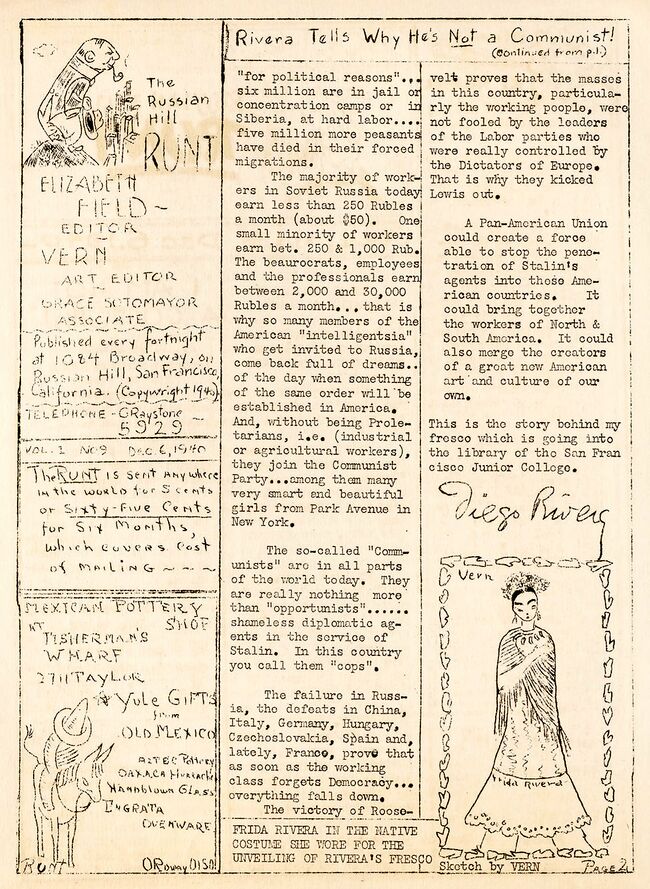 Rivera Tells Why He's Not a Communist!
(continued from p.1.)
The
Russian
Hill
RUNT
ELIZABETH
FIELD~
EDITOR
VERN
ART EDITOR
GRACE SOTOMAYOR
ASSOCIATE
Published every fortnight
at 1084 Broadway, on
Russian Hill, San Francisco,
California. (Copywright 1940)
TELEPHONE - GRaystone
5929
VOL. 1 No 9 DEC. 6, 1940
The RUNT is sent anywhere
in the world for 5 cents
or Sixty-Five Cents
for Six Months,
which covers cost
of mailing ~ ~ ~
MEXICAN POTTERY
SHOP
AT
FISHERMAN'S
WHARF
2711 TAYLOR
Yule Gifts
from
OLD MEXICO
AZTEC Pottery
OAXACA Huarache
Handblown Glass
ENGRATA
OVENWARE
RUNT
ORdway 0150
"for political reasons"...
six million are in jail or
concentration camps or in
Siberia, at hard labor....
five million more peasants
have died in their forced
migrations.
The majority of work-
ers in Soviet Russia today
earn less than 250 Rubles
a month (about $50). One
small minority of workers
earn bet. 250 & 1,000 Rub.
The beaurocrats, employees
and the professionals earn
between 2,000 and 30,000
Rubles a month...that is
why so many members of the
American "intelligentsia"
who get invited to Russia,
come back full of dreams..
of the day when something
of the same order will be
established in America.
And, without being Prole-
tarians, i.e. (industrial
or agricultural workers),
they join the Communist
Party...among them many
very smart and beautiful
girls from Park Avenue in
New York.
The so-called "Comm-
unists" are in all parts
of the world today. They
are really nothing more
than "opportunists"......
shameless diplomatic ag-
ents in the service of
Stalin. In this country
you call them "cops".
The failure in Russ-
ia, the defeats in China,
Italy, Germany, Hungary,
Czechoslovakia, Spain and,
lately, France, prove that
as soon as the working
class forgets Democracy...
everything falls down.
The victory of Roose-
velt proves that the masses
in this country, particula-
rly the working people, were
not fooled by the leaders
of the Labor parties who
were really controlled by
the Dictators of Europe.
That is why they kicked
Lewis out.
A Pan-American Union
could create a force
able to stop the pene-
tration of Stalin's
agents into these Ame-
rican countries. It
could bring together
the workers of North &
South America. It could
also merge the creators
of a great new American
art and culture of our
own.
This is the story behind my
fresco which is going into
the library of the San Fran
cisco Junior College.
Diego Rivera
Vern
Frida Rivera
FRIDA RIVERA IN THE NATIVE
COSTUME SHE WORE FOR THE
UNVEILING OF RIVERA'S FRESCO
Sketch by VERN
PAGE 2